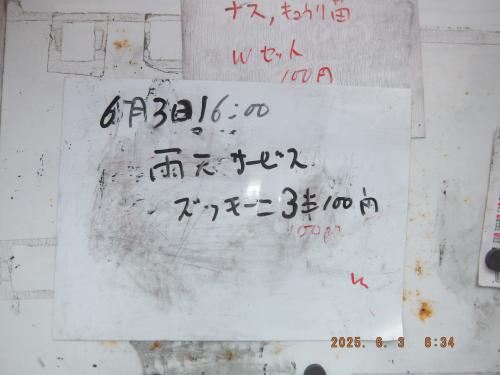 ナス,キュウリ苗
Wセット
100円
6月3日16:00
雨天サービス
ズッキーニ3本100円
150円
2025. 6. 3 6:34